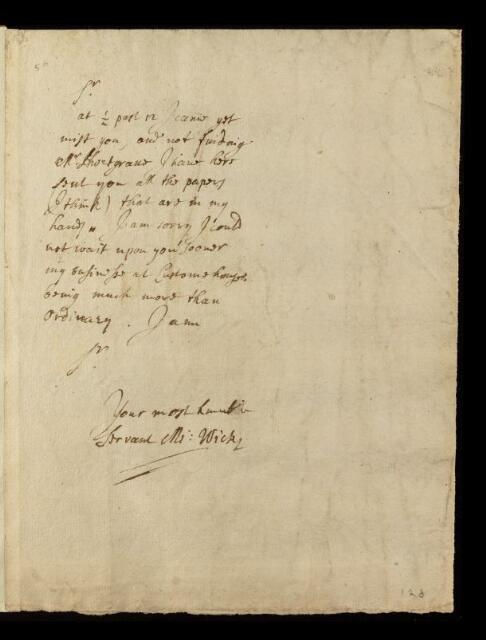 Sr.
at ½ past 12 I came yet
mist you, and not finding
Mr. Shortgrave I have here
sent you all the papers
(I think) that are in my
hands. I am sorry I could
not wait upon you sooner
my businesse at Custome house
being much more than
ordinary. I am
Sr.
Your most humble
Servant Mi: Wicks